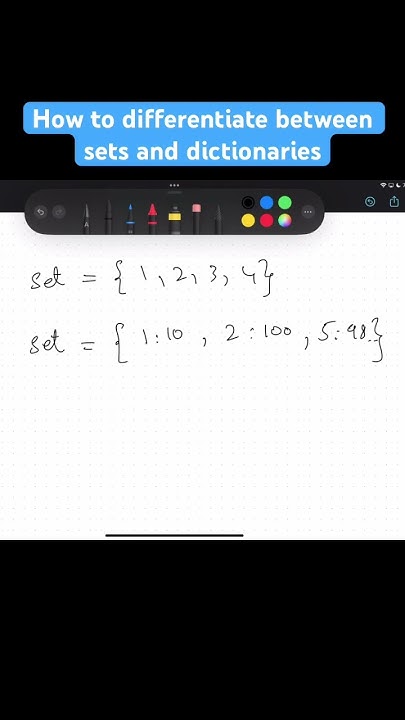 How to differentiate between
sets and dictionaries
set = { 1, 2, 3, 4}
set = { 1:10 , 2 : 100 , 5:98}